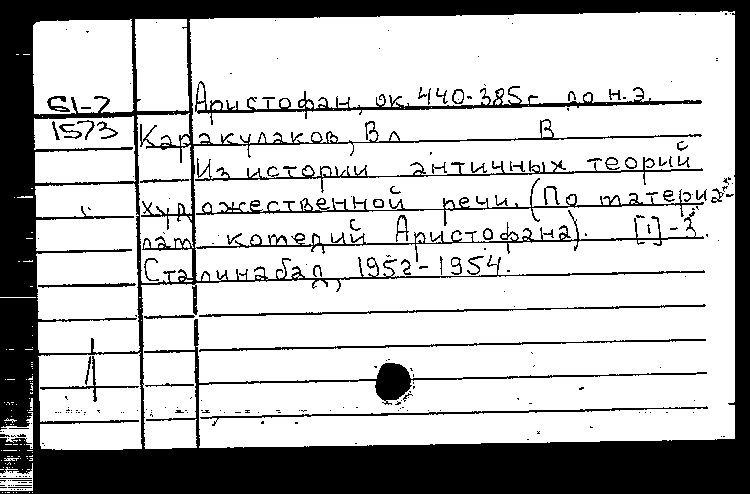 61-7 Аристофан, ок. 440-385г до н.э.
1573 Каракулаков, Вл В
Из истории античных теорий
художественной речи. (По материа-
лам комедий Аристофана). [1]-3.
Сталинабад, 1952-1954.
1